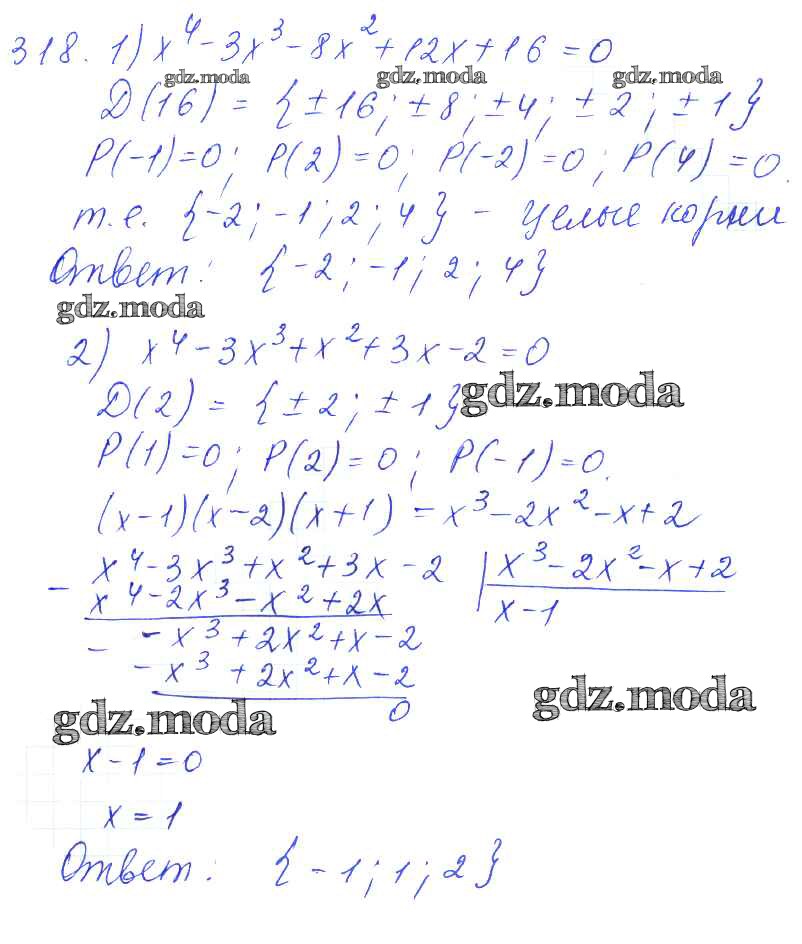 318. 1) x⁴ - 3x³ - 8x² + 12x + 16 = 0
gdz.moda gdz.moda gdz.moda
D(16) = {±16; ±8; ±4; ±2; ±1}
P(-1)=0; P(2)=0; P(-2)=0; P(4)=0.
т.е. {-2; -1; 2; 4} - целые корни
Ответ: {-2; -1; 2; 4}
gdz.moda
2) x⁴ - 3x³ + x² + 3x - 2 = 0
D(2) = {±2; ±1} gdz.moda
P(1)=0; P(2)=0; P(-1)=0.
(x-1)(x-2)(x+1) = x³ - 2x² - x + 2
x⁴ - 3x³ + x² + 3x - 2 | x³ - 2x² - x + 2
- x⁴ - 2x³ - x² + 2x x - 1
- - x³ + 2x² + x - 2
- x³ + 2x² + x - 2
0
gdz.moda gdz.moda
x - 1 = 0
x = 1
Ответ: {-1; 1; 2}